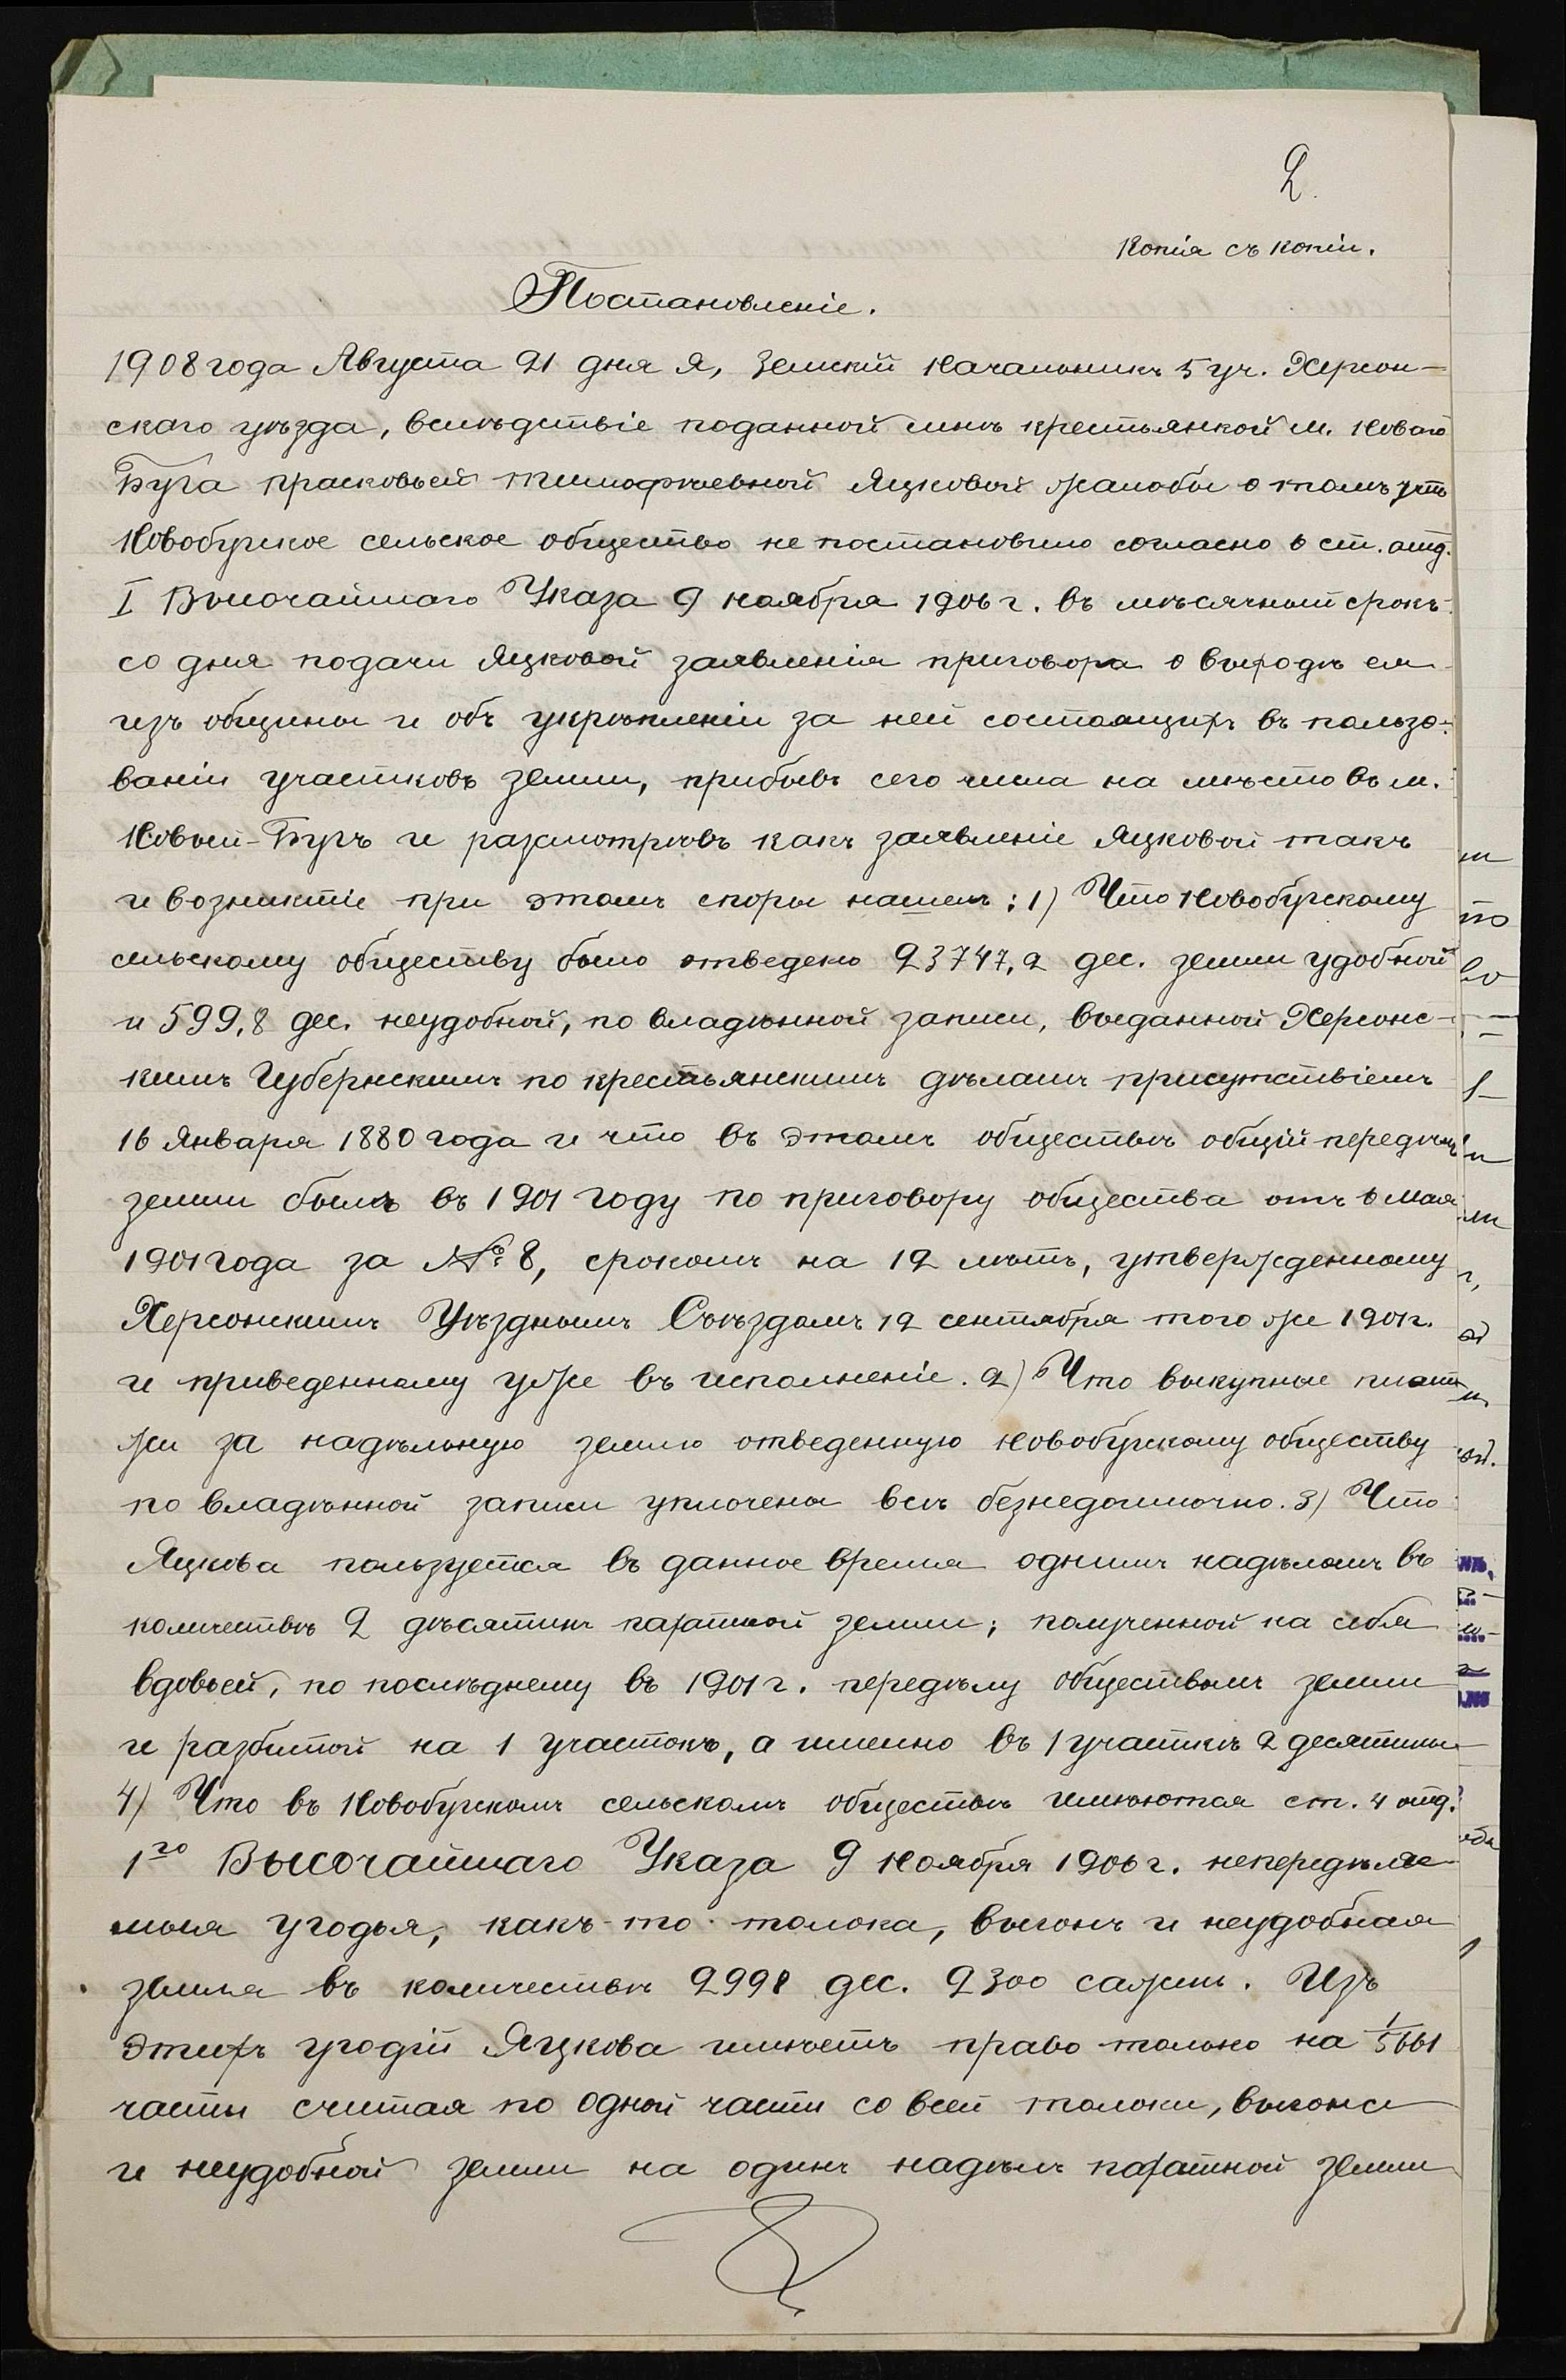 2.
Копія съ копіи.
Постановленіе.
1908 года Августа 21 дня Я, Земскій Начальникъ 5 уч. Херсон-
скаго уѣзда, вслѣдствіе поданной мнѣ крестьянкой м. Новаго
Буга Прасковьей Тимофѣевной Яцковой жалобы о томъ что
Новобугское сельское общество не постановило согласно 6 ст. отд.
I Высочайшаго Указа 9 ноября 1906 г. въ мѣсячный срокъ
со дня подачи Яцковой заявленія приговора о выходѣ ея
изъ общины и объ укрѣпленіи за ней состоящихъ въ пользо-
ваніи участковъ земли, прибывъ сего числа на мѣсто въ м.
Новый-Бугъ и разсмотрѣвъ какъ заявленіе Яцковой такъ
и возникшіе при этомъ споры нашелъ: 1) Что Новобугскому
сельскому обществу было отведено 23747,2 дес. земли удобной
и 599,8 дес. неудобной, по владѣнной записи, выданной Херсонс-
кимъ Губернскимъ по крестьянскимъ дѣламъ присутствіемъ
16 Января 1880 года и что въ этомъ обществѣ общій передѣлъ
земли былъ въ 1901 году по приговору общества отъ 6 мая
1901 года за № 8, срокомъ на 12 лѣтъ, утвержденному
Херсонскимъ Уѣзднымъ Съѣздомъ 12 сентября того же 1901 г.
и приведенному уже въ исполненіе. 2) Что выкупные плате
жи за надѣльную землю отведенную Новобугскому обществу
по владѣнной записи уплочены всѣ безнедоимочно. 3) Что
Яцкова пользуется въ данное время однимъ надѣломъ въ
количествѣ 2 дѣсятинъ пахатной земли; полученной на себя
вдовьей, по послѣднему въ 1901 г. передѣлу обществомъ земли
и разбитой на 1 участокъ, а именно въ 1 участкѣ 2 десятины
4) Что въ Новобугскомъ сельскомъ обществѣ имѣются ст. 4 отд.
1го Высочайшаго Указа 9 Ноября 1906 г. непередѣляе
мыя угодья, какъ-то толока, выгонъ и неудобная
земля въ количествѣ 2998 дес. 2300 сажен. Изъ
этихъ угодій Яцкова имѣетъ право только на 1/5661
часть считая по одной части со всей толоки, выгона
и неудобной земли на одинъ надѣлъ пахатной земли